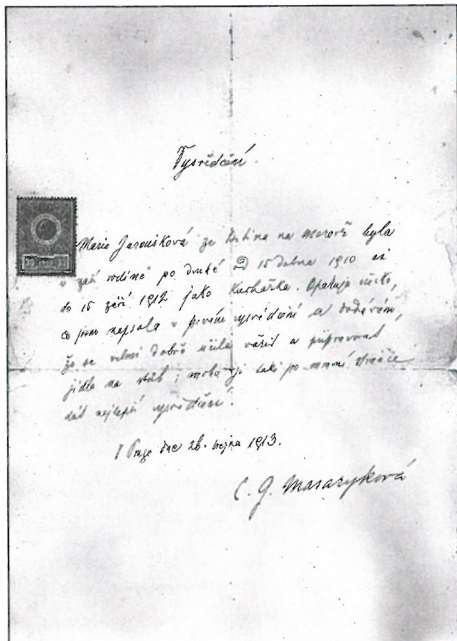 Vysvědčení.
Marie Janoušková ze na Moravě byla
v naší rodině po druhé Od 15 dubna 1910 až
do 15 září 1912 jako kuchařka. Opakuji vše,
co jsem napsala v prvém vysvědčení a dodávám,
že se velmi dobře učila vařit a připravovat
jídlo na stůl; mohu jí také po mravní stránce
dát nejlepší vysvědčení.
V Praze dne 26. října 1913.
C. G. Masaryková